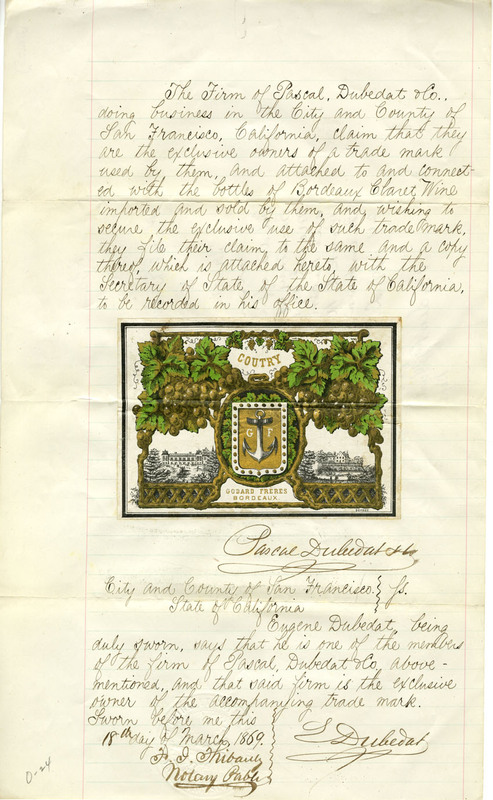 The Firm of Pascal, Dubedat & Co.,
doing business in the City and County of
San Francisco, California, claim that they
are the exclusive owners of a trade mark
used by them, and attached to and connect-
ed with the bottles of Bordeaux Claret Wine
imported and sold by them, and, wishing to
secure the exclusive use of such trade mark,
they file their claim, to the same and a copy
thereof, which is attached hereto, with the
Secretary of State, of the State of California,
to be recorded in his office.
COUTRY
G F
GODARD FRERES
BORDEAUX
Pascal Dubedat & Co
City and County of San Francisco. } ss.
State of California
Eugene Dubedat, being
duly sworn, says that he is one of the members
of the firm of Pascal, Dubedat & Co, above-
mentioned, and that said firm is the exclusive
owner of the accompanying trade mark.
Sworn before me this
18th day of March, 1869.
Thibault
Notary Public
Dubedat
0-24